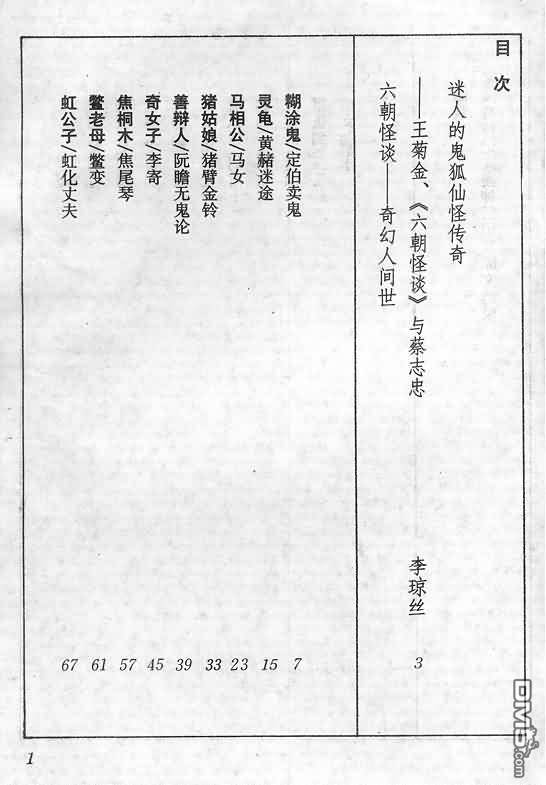 目次
迷人的鬼狐仙怪传奇
——王菊金、《六朝怪谈》与蔡志忠 李琼丝 3
六朝怪谈——奇幻人间世
糊涂鬼/定伯卖鬼 7
灵龟/黄赭迷途 15
马相公/马女 23
猪姑娘/猪臂金铃 33
善辩人/阮瞻无鬼论 39
奇女子/李寄 45
焦桐木/焦尾琴 57
鳖老母/鳖变 61
虹公子/虹化丈夫 67
1
DM5.com